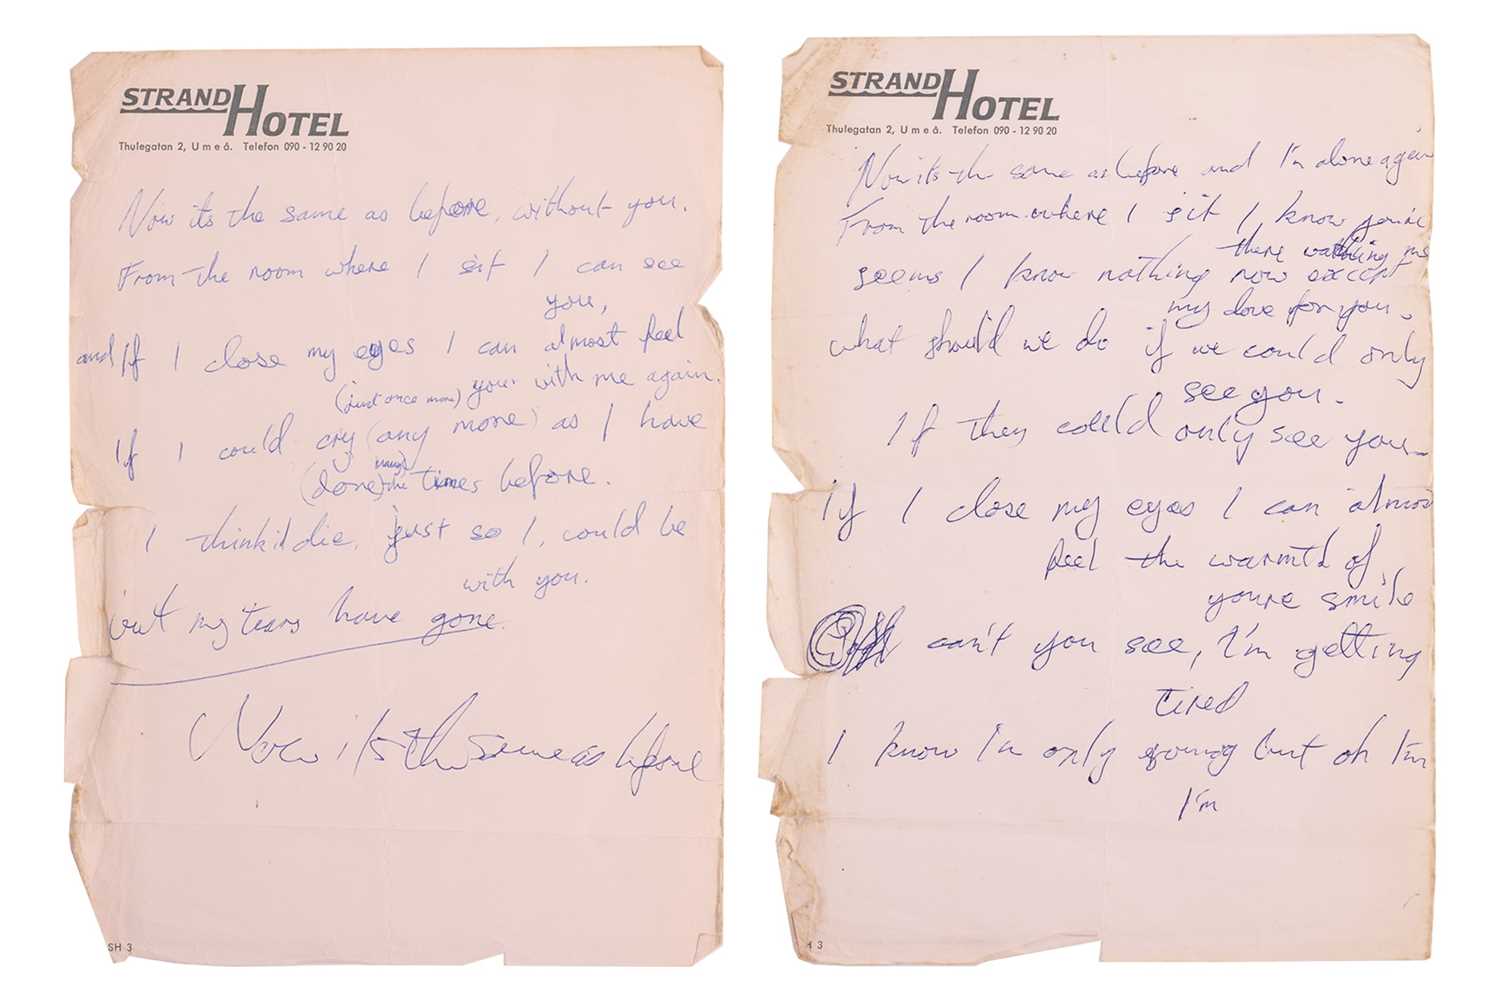 STRAND HOTEL
Thulegatan 2, Umeå. Telefon 090 - 12 90 20
Now its the same as before, without you.
From the room where I sit I can see
you,
and If I close my eyes I can almost feel
(just once more) your with me again.
If I could cry (any more) as I have
(done) the times before.
I think i'd die, just so I, could be
with you.
but my tears have gone.
Now its the same as before
SH 3
STRAND HOTEL
Thulegatan 2, Umeå. Telefon 090 - 12 90 20
Now its the same as before and I'm alone again
From the room where I sit I know you're
there watching me
seems I know nothing now except
my love for you.
what should we do if we could only
see you.
If they could only see you
If I close my eyes I can almost
feel the warmth of
youre smile
can't you see, I'm getting
tired
I know I'm only young but oh I'm
I'm
H 3